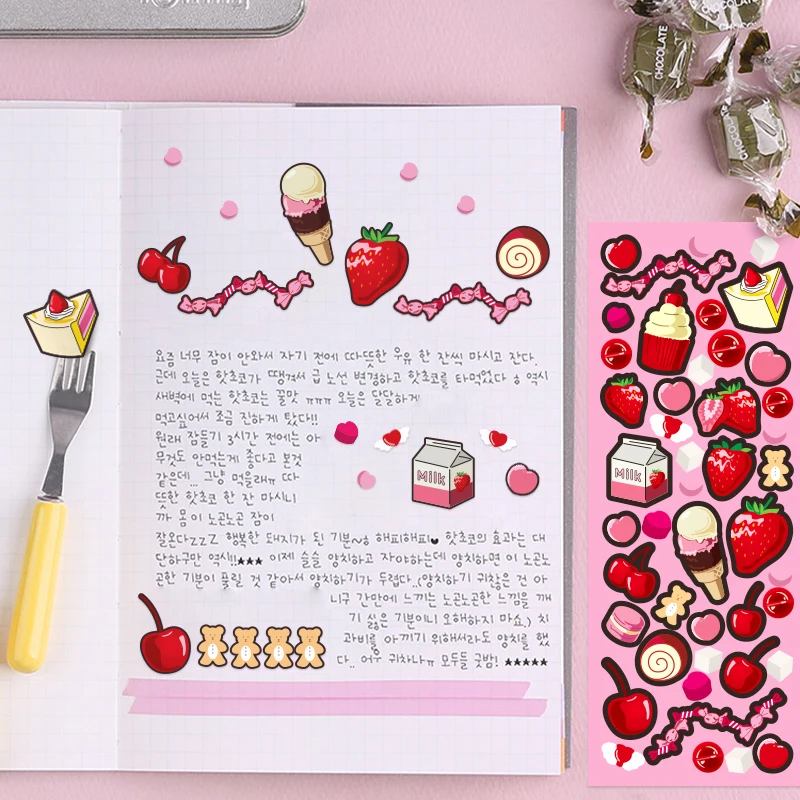 CHOCOLATE
CHOCOLATE
CHOCOLATE
요즘 너무 잠이 안와서 자기 전에 따뜻한 우유 한 잔씩 마시고 잔다.
근데 오늘은 핫초코가 땡겨서 급 노선 변경하고 핫초코를 타먹었다 ㅎ 역시
새벽에 먹는 핫초코는 꿀맛 ㅠㅠㅠ 오늘은 달달하게
먹고싶어서 조금 진하게 탔다!!
원래 잠들기 3시간 전에는 아
무것도 안먹는게 좋다고 본것
같은데... 그냥 먹을래ㅠ 따
뜻한 핫초코 한 잔 마시니
까 몸이 노곤노곤 잠이
잘온다zzZ 행복한 돼지가 된 기분~! 해피해피♥ 핫초코의 효과는 대
단하구만 역시!!★★★ 이제 슬슬 양치하고 자야하는데 양치하면 이 노곤노
곤한 기분이 풀릴 것 같아서 양치하기가 두렵다..(양치하기 귀찮은 건 아
니구 간만에 느끼는 노곤노곤한 느낌을 깨
기 싫은 기분이니 오해하지 마쇼,) 치
과비를 아끼기 위해서라도 양치를 했
다.. 어ㅜ 귀차나ㅠ 모두들 굿밤! ★★★★★
Milk
Milk